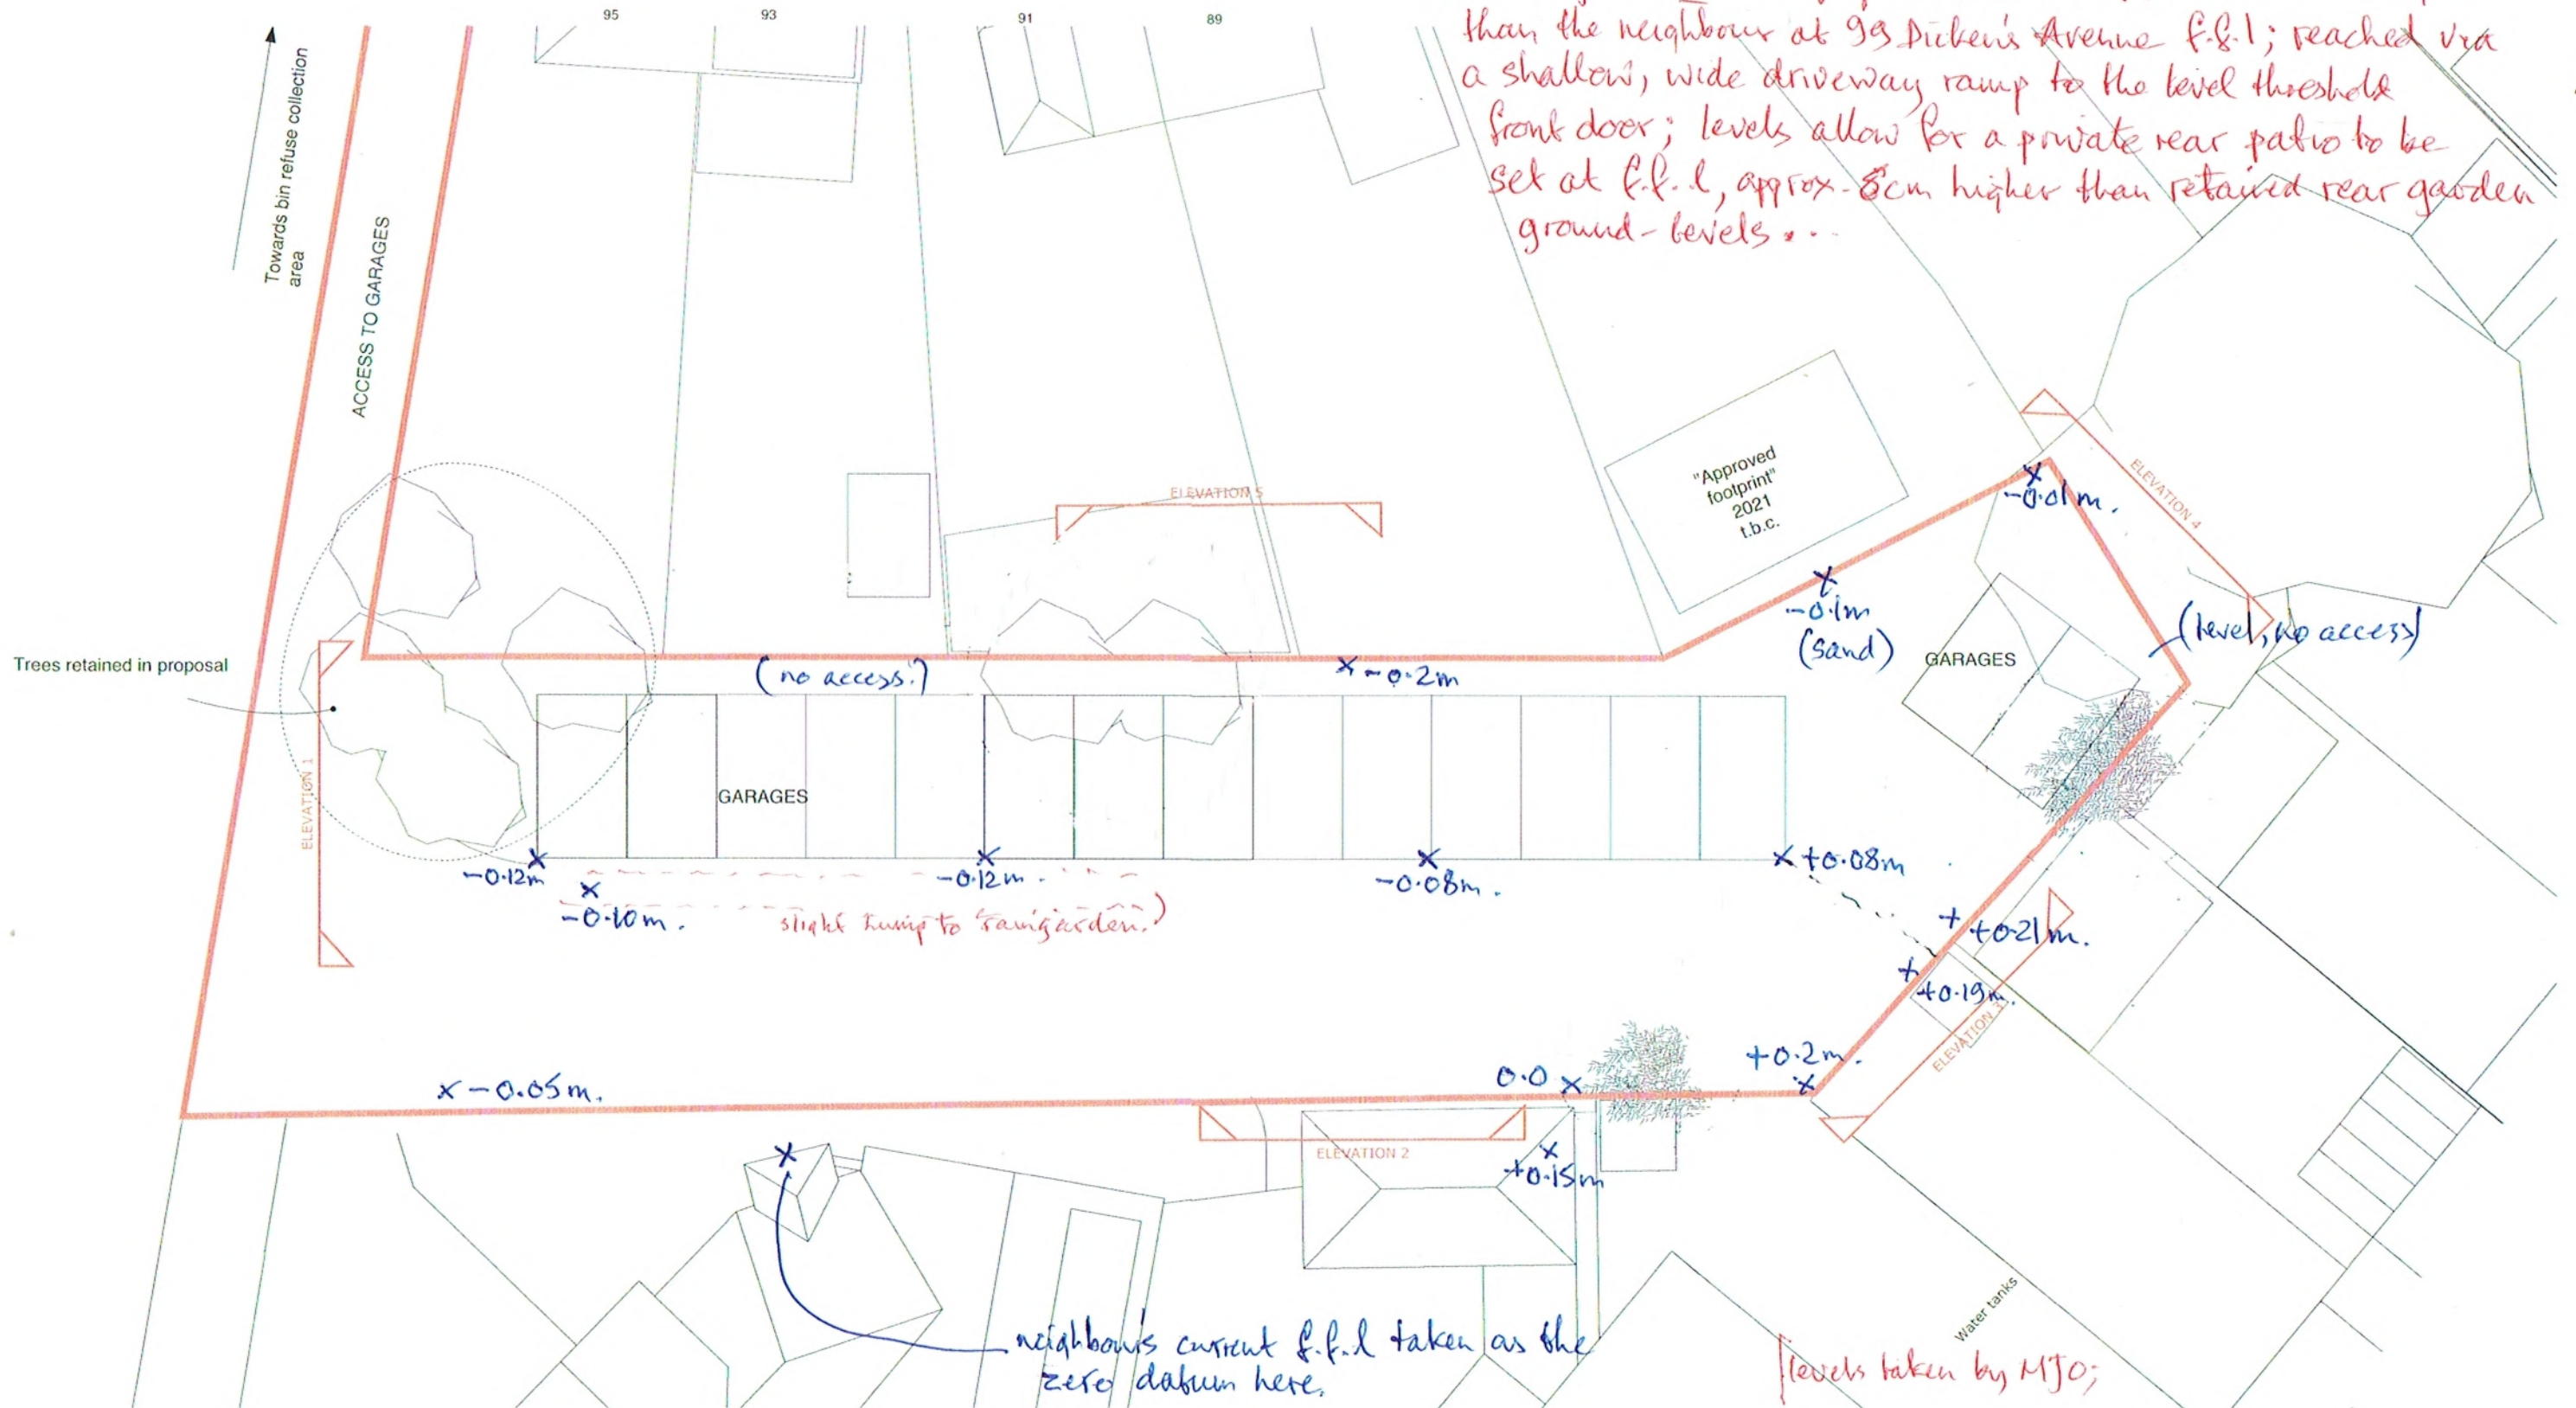 95
93
91
89
than the neighbour at 99 Dickens Avenue f.f.l; reached via
a shallow, wide driveway ramp to the level threshold
front door; levels allow for a private rear patio to be
set at f.f.l, approx. 8cm higher than retained rear garden
ground-levels...
Towards bin refuse collection
area
ACCESS TO GARAGES
"Approved
footprint"
2021
t.b.c.
ELEVATION 5
ELEVATION 4
-0.01m.
-0.1m
(sand)
(level, no access)
GARAGES
Trees retained in proposal
(no access!)
-0.2m
ELEVATION 1
GARAGES
-0.12m
-0.12m.
-0.08m.
+0.08m
-0.10m.
slight hump to raingarden.)
+0.21m.
+0.19m.
ELEVATION 3
+0.2m.
0.0
-0.05m.
ELEVATION 2
+0.15m
neighbour's current f.f.l taken as the
zero datum here.
Water tanks
levels taken by MJO;